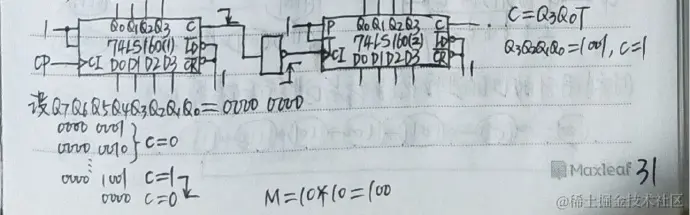 Q0 Q1 Q2 Q3 C
1 74LS160(1) LD
CP CI D0 D1 D2 D3 CR 1
1 P Q0 Q1 Q2 Q3 C
T 74LS160(2) LD
CI D0 D1 D2 D3 CR 1
C=Q3Q0T
Q3Q2Q1Q0=1001, C=1
设Q7Q6Q5Q4Q3Q2Q1Q0=0000 0000
0000 0001
0000 0010 } C=0
⋮
0000 1001 C=1
0000 C=0
M=10*10=100
Maxleaf 31
@稀土掘金技术社区